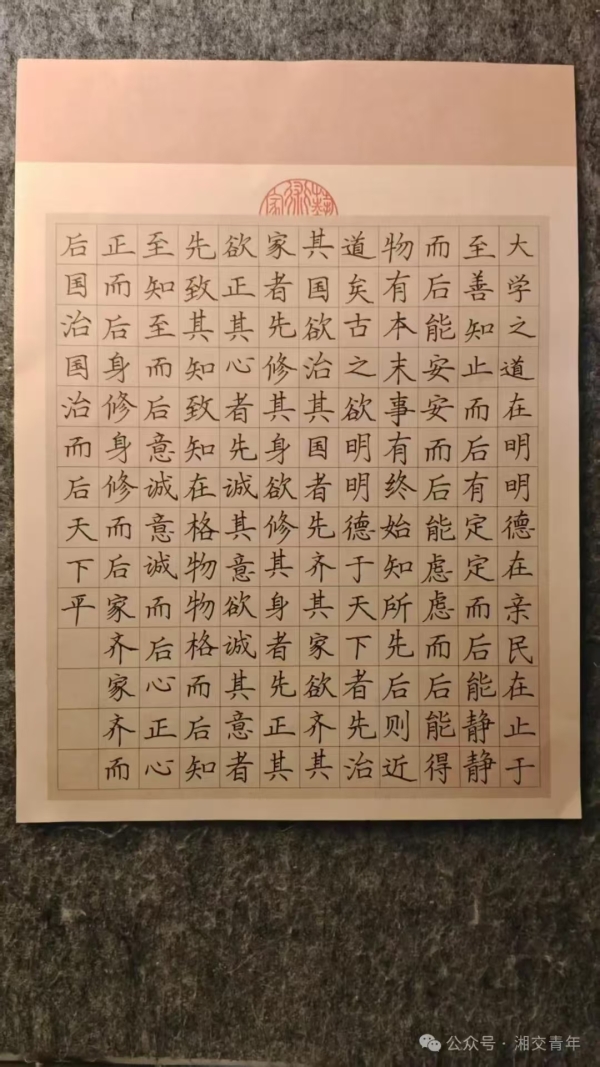 藝術家
大学之道在明明德在亲民在止于
至善知止而后有定定而后能静静
而后能安安而后能虑虑而后能得
物有本末事有终始知所先后则近
道矣古之欲明明德于天下者先治
其国欲治其国者先齐其家欲齐其
家者先修其身欲修其身者先正其
欲正其心者先诚其意欲诚其意者
先致其知致知在格物物格而后知
至知至而后意诚意诚而后心正心
正而后身修身修而后家齐家齐而
后国治国治而后天下平
公众号·湘交青年